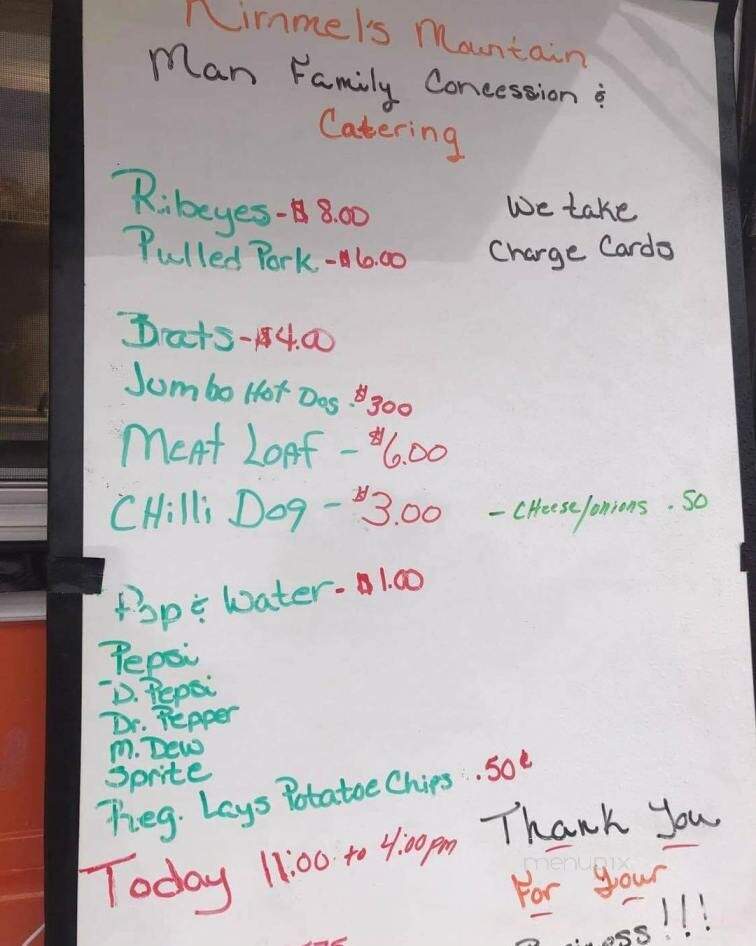 Kimmel's Mountain
Man Family Concession &
Catering
Ribeyes - $8.00
We take
Pulled Pork - $6.00
Charge Cards
Brats - $4.00
Jumbo Hot Dog - $300
Meat Loaf - $6.00
CHilli Dog - $3.00 - CHeese/onions .50
Pop & Water - $1.00
Pepsi
D. Pepsi
Dr. Pepper
M. Dew
Sprite
Reg. Lays Potatoe Chips . .50¢
Today 11:00 to 4:00pm
Thank You
menupix
For Your
Business!!!